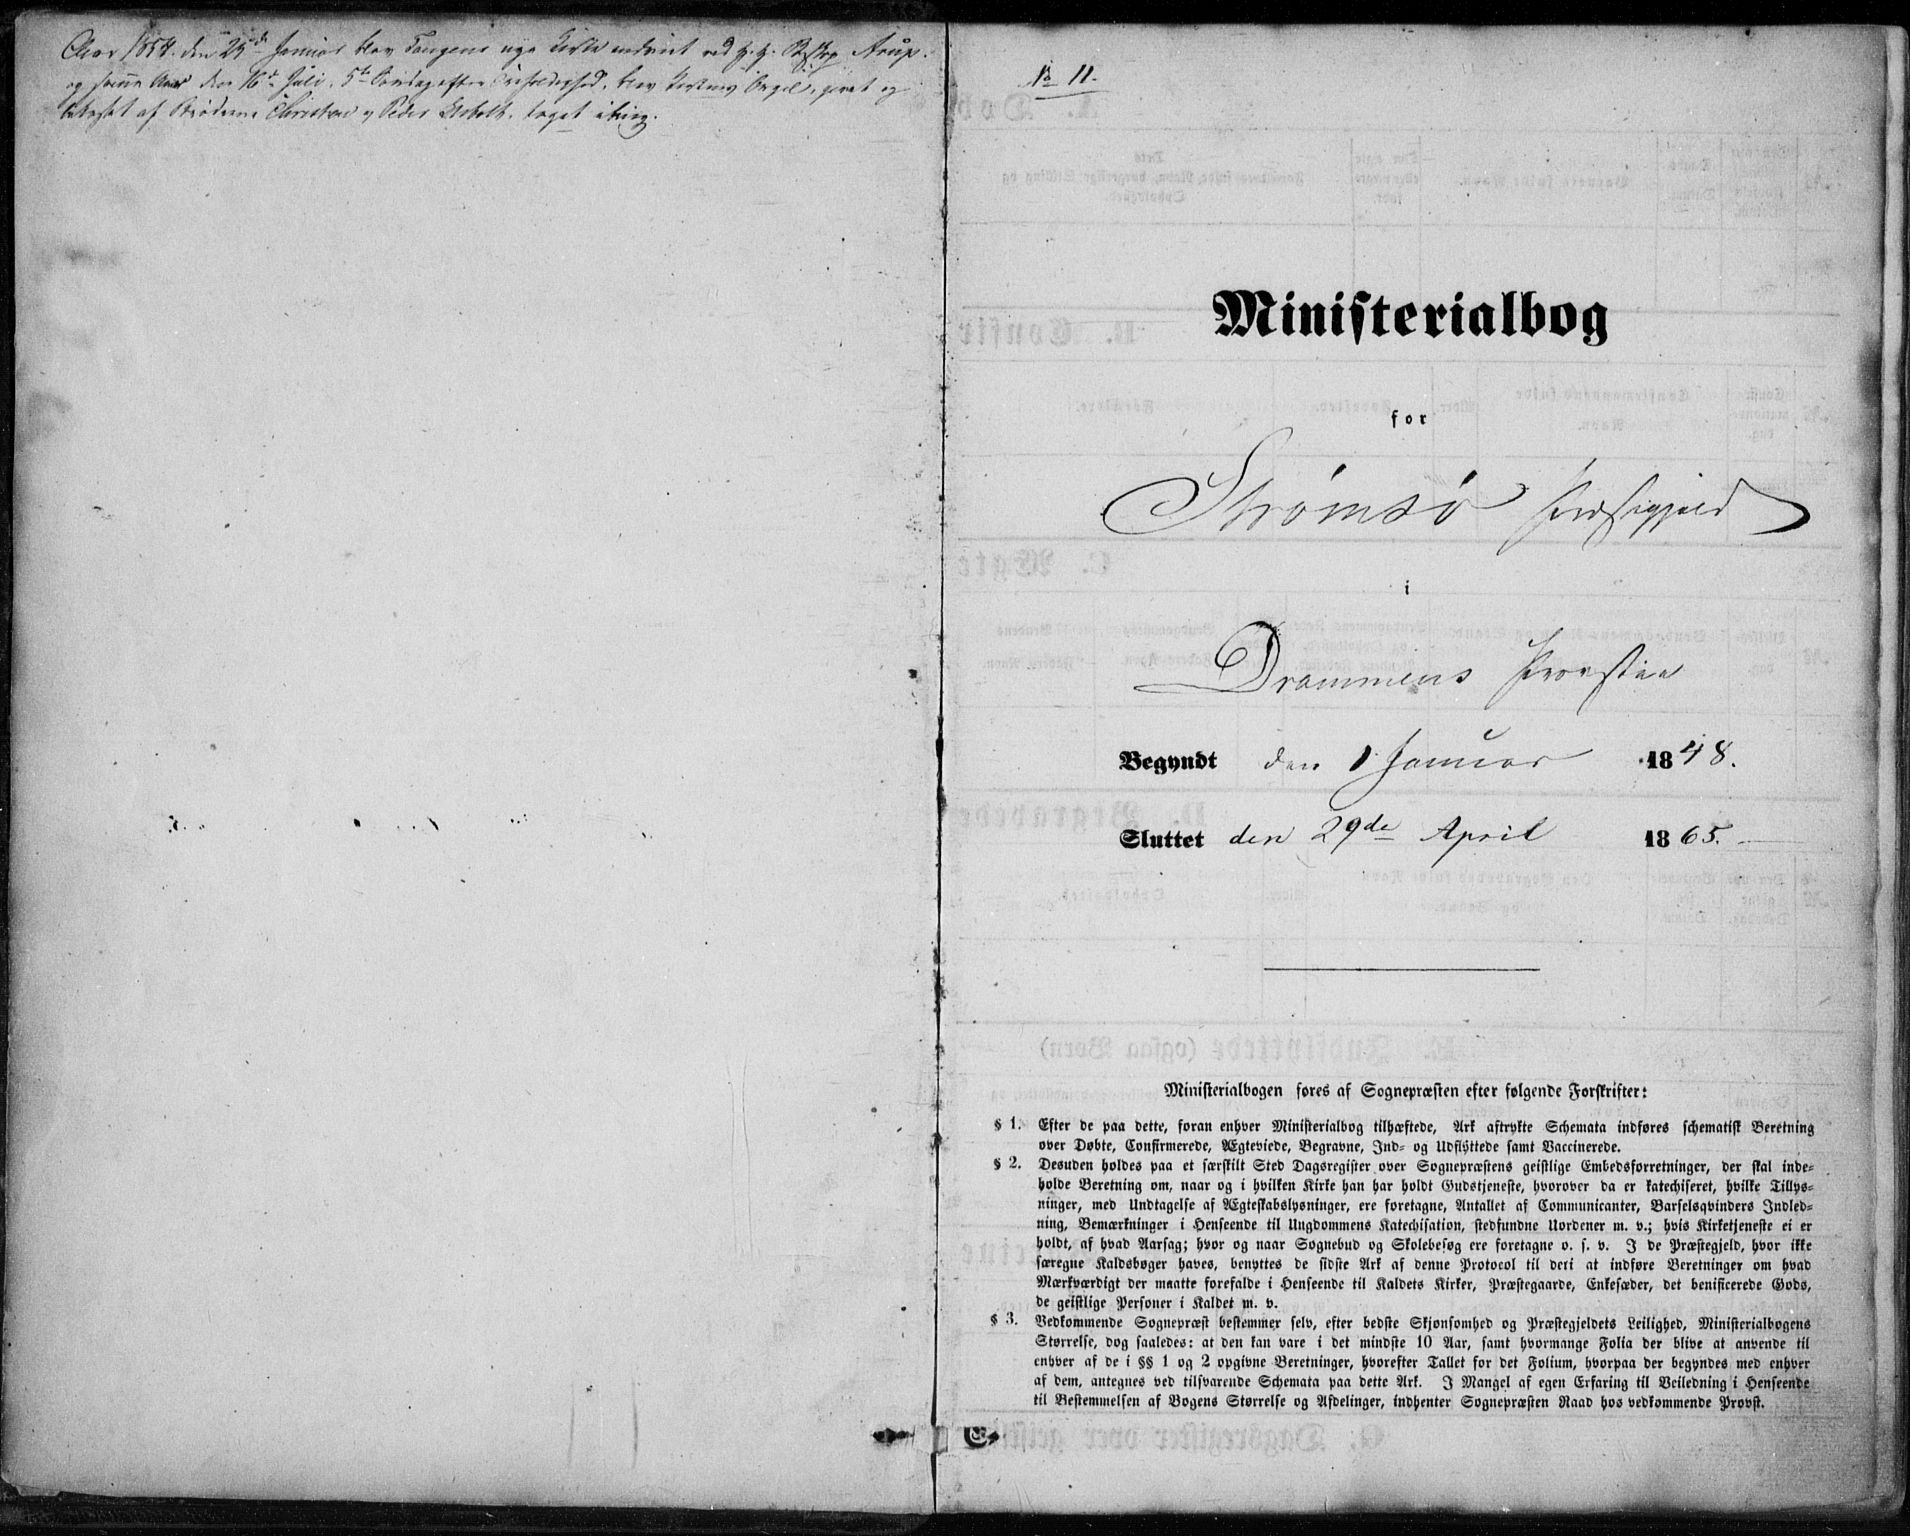 Aar 1854 den 25de Januar blev Tangens nye Kirke indviet ved H. H. Biskop Arup.
og samme Aar den 16de Juli, 5te Søndag efter Trefoldighed, blev Kirkens Orgel, givet og
bekostet af Brødrene Christian og Peder, taget i brug.
No 11.
Ministerialbog
for
Strømsø Præstegjeld
i
Drammens Provstie
Begyndt den 1 Januar 1848.
Sluttet den 29de April 1865.
Ministerialbogen føres af Sognepræsten efter følgende Forskrifter:
§ 1. Efter de paa dette, foran enhver Ministerialbog tilhæftede, Ark aftrykte Schemata indføres schematisk Beretning
over Døbte, Confirmerede, Ægteviede, Begravne, Ind- og Udflyttede samt Vaccinerede.
§ 2. Desuden holdes paa et særskilt Sted Dagsregister over Sognepræstens geistlige Embedsforretninger, der skal inde-
holde Beretning om, naar og i hvilken Kirke han har holdt Gudstjeneste, hvorover da er katechiseret, hvilke Tillys-
ninger, med Undtagelse af Ægteskabslysninger, ere foretagne, Antallet af Communicanter, Barselsqvinders Indled-
ning, Bemærkninger i Henseende til Ungdommens Katechisation, stedfundne Uordener m. v.; hvis Kirketjeneste ei er
holdt, af hvad Aarsag; hvor og naar Sognebud og Skolebesøg ere foretagne o. s. v. I de Præstegjeld, hvor ikke
særegne Kaldsbøger haves, benyttes de sidste Ark af denne Protocol til deri at indføre Beretninger om hvad
Mærkværdigt der maatte forefalde i Henseende til Kaldets Kirker, Præstegaarde, Enkesæder, det benificerede Gods,
de geistlige Personer i Kaldet m. v.
§ 3. Vedkommende Sognepræst bestemmer selv, efter bedste Skjønsomhed og Præstegjeldets Leilighed, Ministerialbogens
Størrelse, dog saaledes: at den kan vare i det mindste 10 Aar, samt hvormange Folia der blive at anvende til
enhver af de i §§ 1 og 2 opgivne Beretninger, hvorefter Tallet for det Folium, hvorpaa der begyndes med enhver
af dem, antegnes ved tilsvarende Schemata paa dette Ark. I Mangel af egen Erfaring til Veiledning i Henseende
til Bestemmelsen af Bogens Størrelse og Afdelinger, indhenter Sognepræsten Raad hos vedkommende Provst.